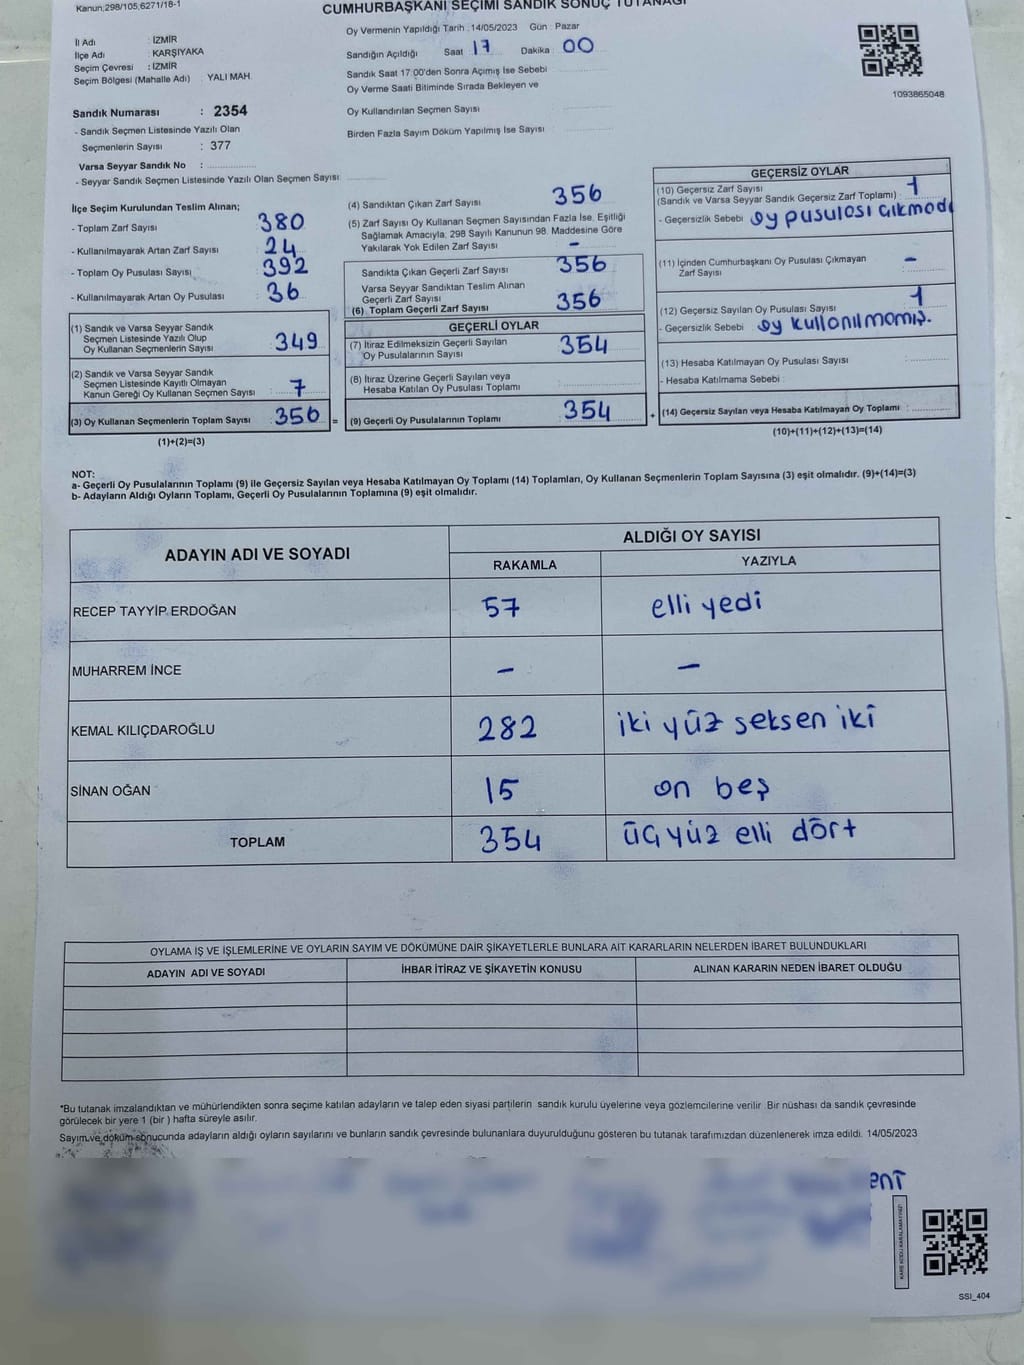 Kanun;298/105,6271/18-1
CUMHURBAŞKANI SEÇİMİ SANDIK SONUÇ TUTANAĞI
İl Adı : İZMİR
İlçe Adı : KARŞIYAKA
Seçim Çevresi : İZMİR
Seçim Bölgesi (Mahalle Adı) : YALI MAH.
Sandık Numarası : 2354
- Sandık Seçmen Listesinde Yazılı Olan
Seçmenlerin Sayısı : 377
Varsa Seyyar Sandık No :
- Seyyar Sandık Seçmen Listesinde Yazılı Olan Seçmen Sayısı:
Oy Vermenin Yapıldığı Tarih : 14/05/2023 Gün : Pazar
Sandığın Açıldığı Saat 17 Dakika : 00
Sandık Saat 17:00'den Sonra Açımış İse Sebebi
Oy Verme Saati Bitiminde Sırada Bekleyen ve
Oy Kullandırılan Seçmen Sayısı
Birden Fazla Sayım Döküm Yapılmış İse Sayısı
1093865048
İlçe Seçim Kurulundan Teslim Alınan;
- Toplam Zarf Sayısı : 380
- Kullanılmayarak Artan Zarf Sayısı : 24
- Toplam Oy Pusulası Sayısı : 392
- Kullanılmayarak Artan Oy Pusulası : 36
(1) Sandık ve Varsa Seyyar Sandık
Seçmen Listesinde Yazılı Olup
Oy Kullanan Seçmenlerin Sayısı : 349
(2) Sandık ve Varsa Seyyar Sandık
Seçmen Listesinde Kayıtlı Olmayan
Kanun Gereği Oy Kullanan Seçmen Sayısı : 7
(3) Oy Kullanan Seçmenlerin Toplam Sayısı : 356 =
(1)+(2)=(3)
(4) Sandıktan Çıkan Zarf Sayısı : 356
(5) Zarf Sayısı Oy Kullanan Seçmen Sayısından Fazla İse, Eşitliği
Sağlamak Amacıyla; 298 Sayılı Kanunun 98. Maddesine Göre
Yakılarak Yok Edilen Zarf Sayısı : -
Sandıkta Çıkan Geçerli Zarf Sayısı : 356
Varsa Seyyar Sandıktan Teslim Alınan
Geçerli Zarf Sayısı
(6) Toplam Geçerli Zarf Sayısı : 356
GEÇERLİ OYLAR
(7) İtiraz Edilmeksizin Geçerli Sayılan
Oy Pusulalarının Sayısı : 354
(8) İtiraz Üzerine Geçerli Sayılan veya
Hesaba Katılan Oy Pusulası Toplamı :
(9) Geçerli Oy Pusulalarının Toplamı : 354 +
GEÇERSİZ OYLAR
(10) Geçersiz Zarf Sayısı : 1
(Sandık ve Varsa Seyyar Sandık Geçersiz Zarf Toplamı)
- Geçersizlik Sebebi : oy pusulası çıkmadı
(11) İçinden Cumhurbaşkanı Oy Pusulası Çıkmayan
Zarf Sayısı : -
(12) Geçersiz Sayılan Oy Pusulası Sayısı : 1
- Geçersizlik Sebebi : oy kullanılmamış.
(13) Hesaba Katılmayan Oy Pusulası Sayısı :
- Hesaba Katılmama Sebebi :
(14) Geçersiz Sayılan veya Hesaba Katılmayan Oy Toplamı :
(10)+(11)+(12)+(13)=(14)
NOT:
a- Geçerli Oy Pusulalarının Toplamı (9) ile Geçersiz Sayılan veya Hesaba Katılmayan Oy Toplamı (14) Toplamları, Oy Kullanan Seçmenlerin Toplam Sayısına (3) eşit olmalıdır. (9)+(14)=(3)
b- Adayların Aldığı Oyların Toplamı, Geçerli Oy Pusulalarının Toplamına (9) eşit olmalıdır.
ADAYIN ADI VE SOYADI ALDIĞI OY SAYISI
RAKAMLA YAZIYLA
RECEP TAYYİP ERDOĞAN 57 elli yedi
MUHARREM İNCE - -
KEMAL KILIÇDAROĞLU 282 iki yüz seksen iki
SİNAN OĞAN 15 on beş
TOPLAM 354 üç yüz elli dört
OYLAMA İŞ VE İŞLEMLERİNE VE OYLARIN SAYIM VE DÖKÜMÜNE DAİR ŞİKAYETLERLE BUNLARA AİT KARARLARIN NELERDEN İBARET BULUNDUKLARI
ADAYIN ADI VE SOYADI İHBAR İTİRAZ VE ŞİKAYETİN KONUSU ALINAN KARARIN NEDEN İBARET OLDUĞU
*Bu tutanak imzalandıktan ve mühürlendikten sonra seçime katılan adayların ve talep eden siyasi partilerin sandık kurulu üyelerine veya gözlemcilerine verilir. Bir nüshası da sandık çevresinde
görülecek bir yere 1 (bir ) hafta süreyle asılır.
Sayım ve döküm sonucunda adayların aldığı oyların sayılarını ve bunların sandık çevresinde bulunanlara duyurulduğunu gösteren bu tutanak tarafımızdan düzenlenerek imza edildi. 14/05/2023
eni
KARE KODU KARALAMAYINIZ!
SSI_404